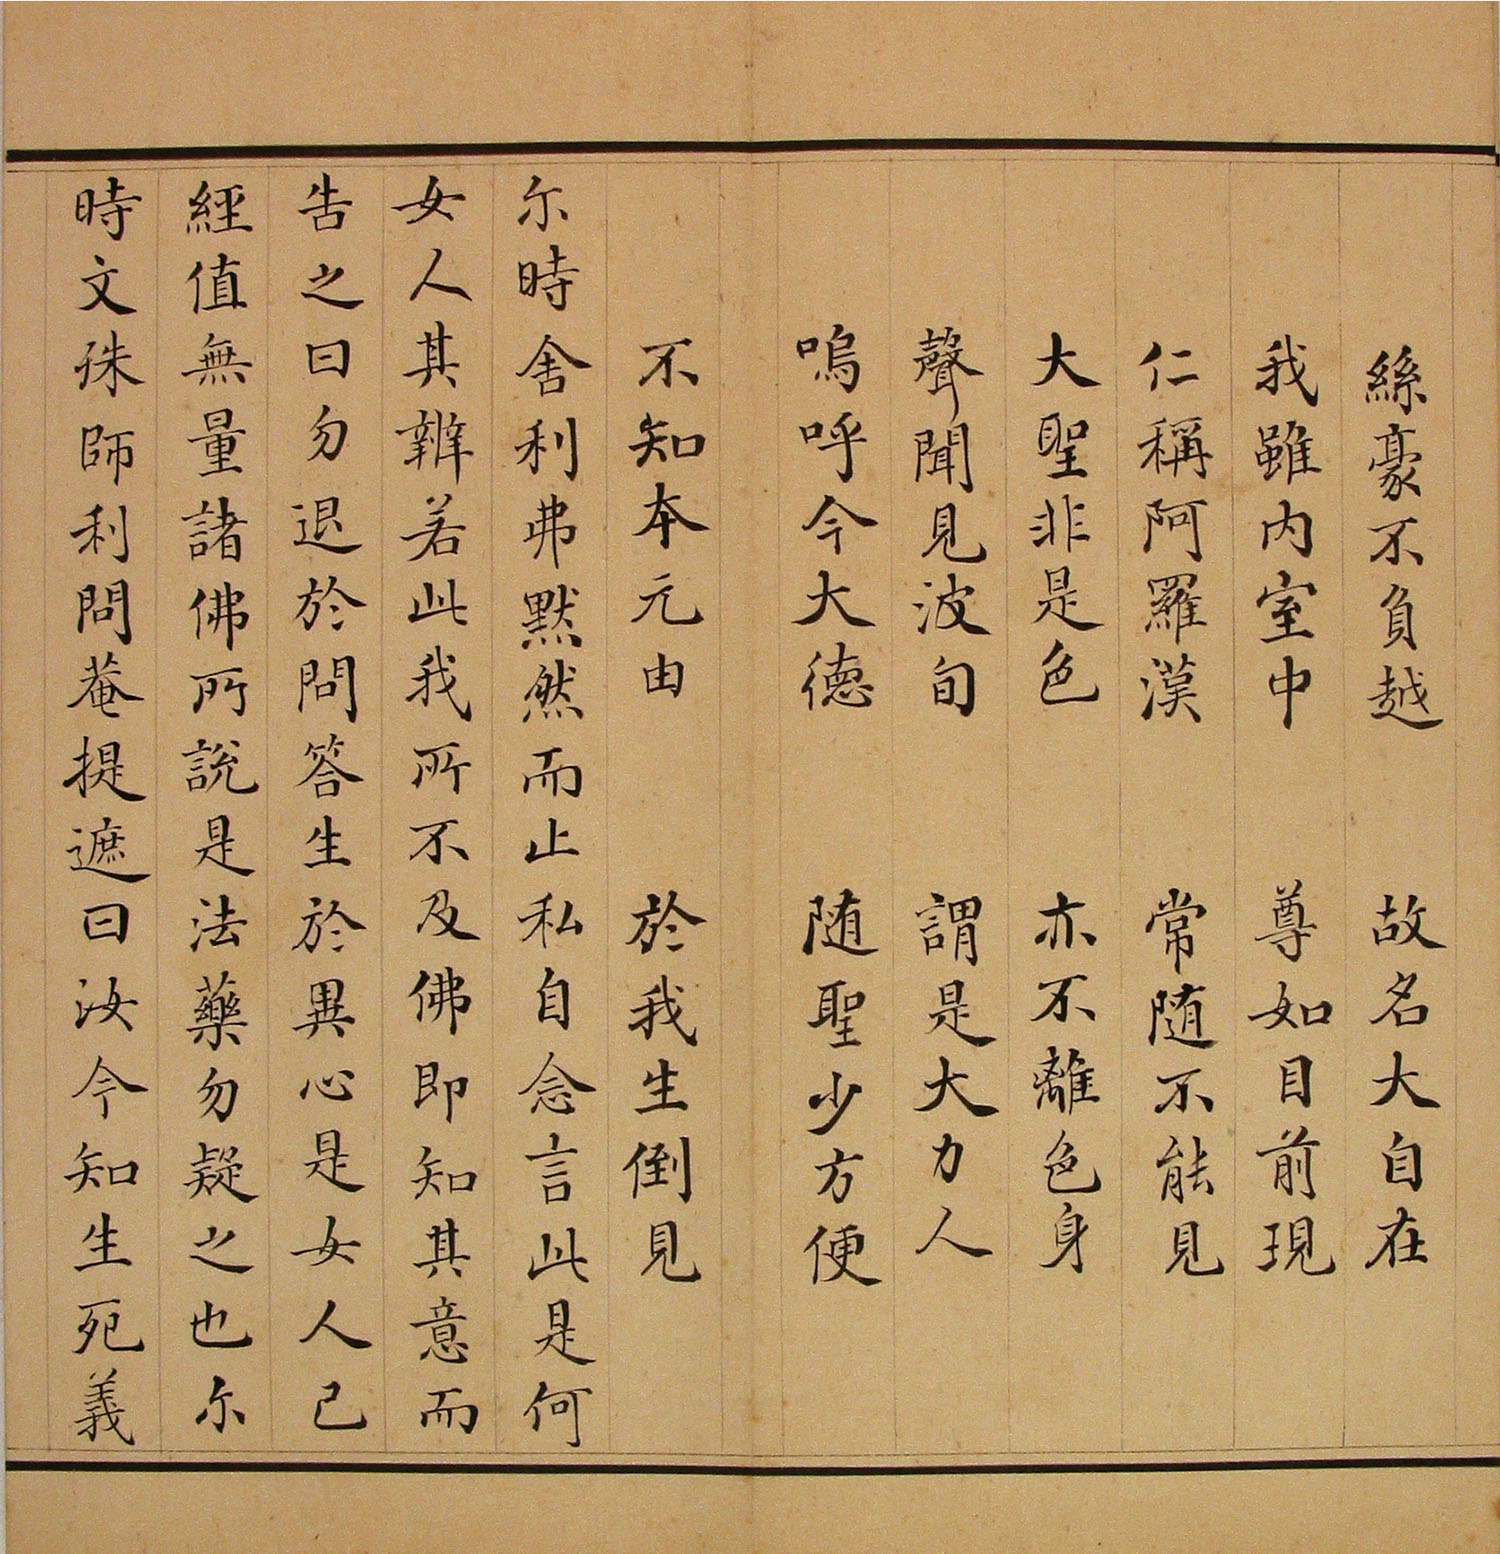 絲豪不負越 故名大自在
我雖内室中 尊如目前現
仁稱阿羅漢 常随不能見
大聖非是色 亦不離色身
聲聞見波旬 謂是大力人
嗚呼今大德 随聖少方便
不知本元由 於我生倒見
尔時舍利弗默然而止私自念言此是何
女人其辨若此我所不及佛即知其意而
告之曰勿退於問答生於異心是女人已
經值無量諸佛所說是法藥勿疑之也尔
時文殊師利問菴提遮曰汝今知生死義